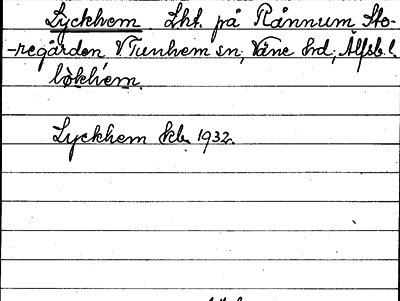 Lyckhem Lht. på Rånnum Sto-
-regården, V Tunhem sn, Väne hd, Älfsb. l.
lökhem.
Lyckhem kb. 1932.